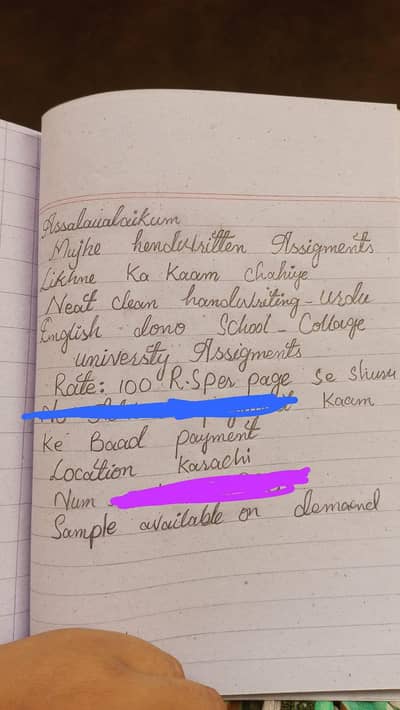 Assalaualaikum
Mujhe hendwritten Assigments
Likhne Ka Kaam chahiye
Neat clean handwriting - urdu
English dono School - Collage
universty Assigments
Rate: 100 R.S per page se shuru
Kaam
Ke Baad payment
Location Karachi
Num
Sample available on demand